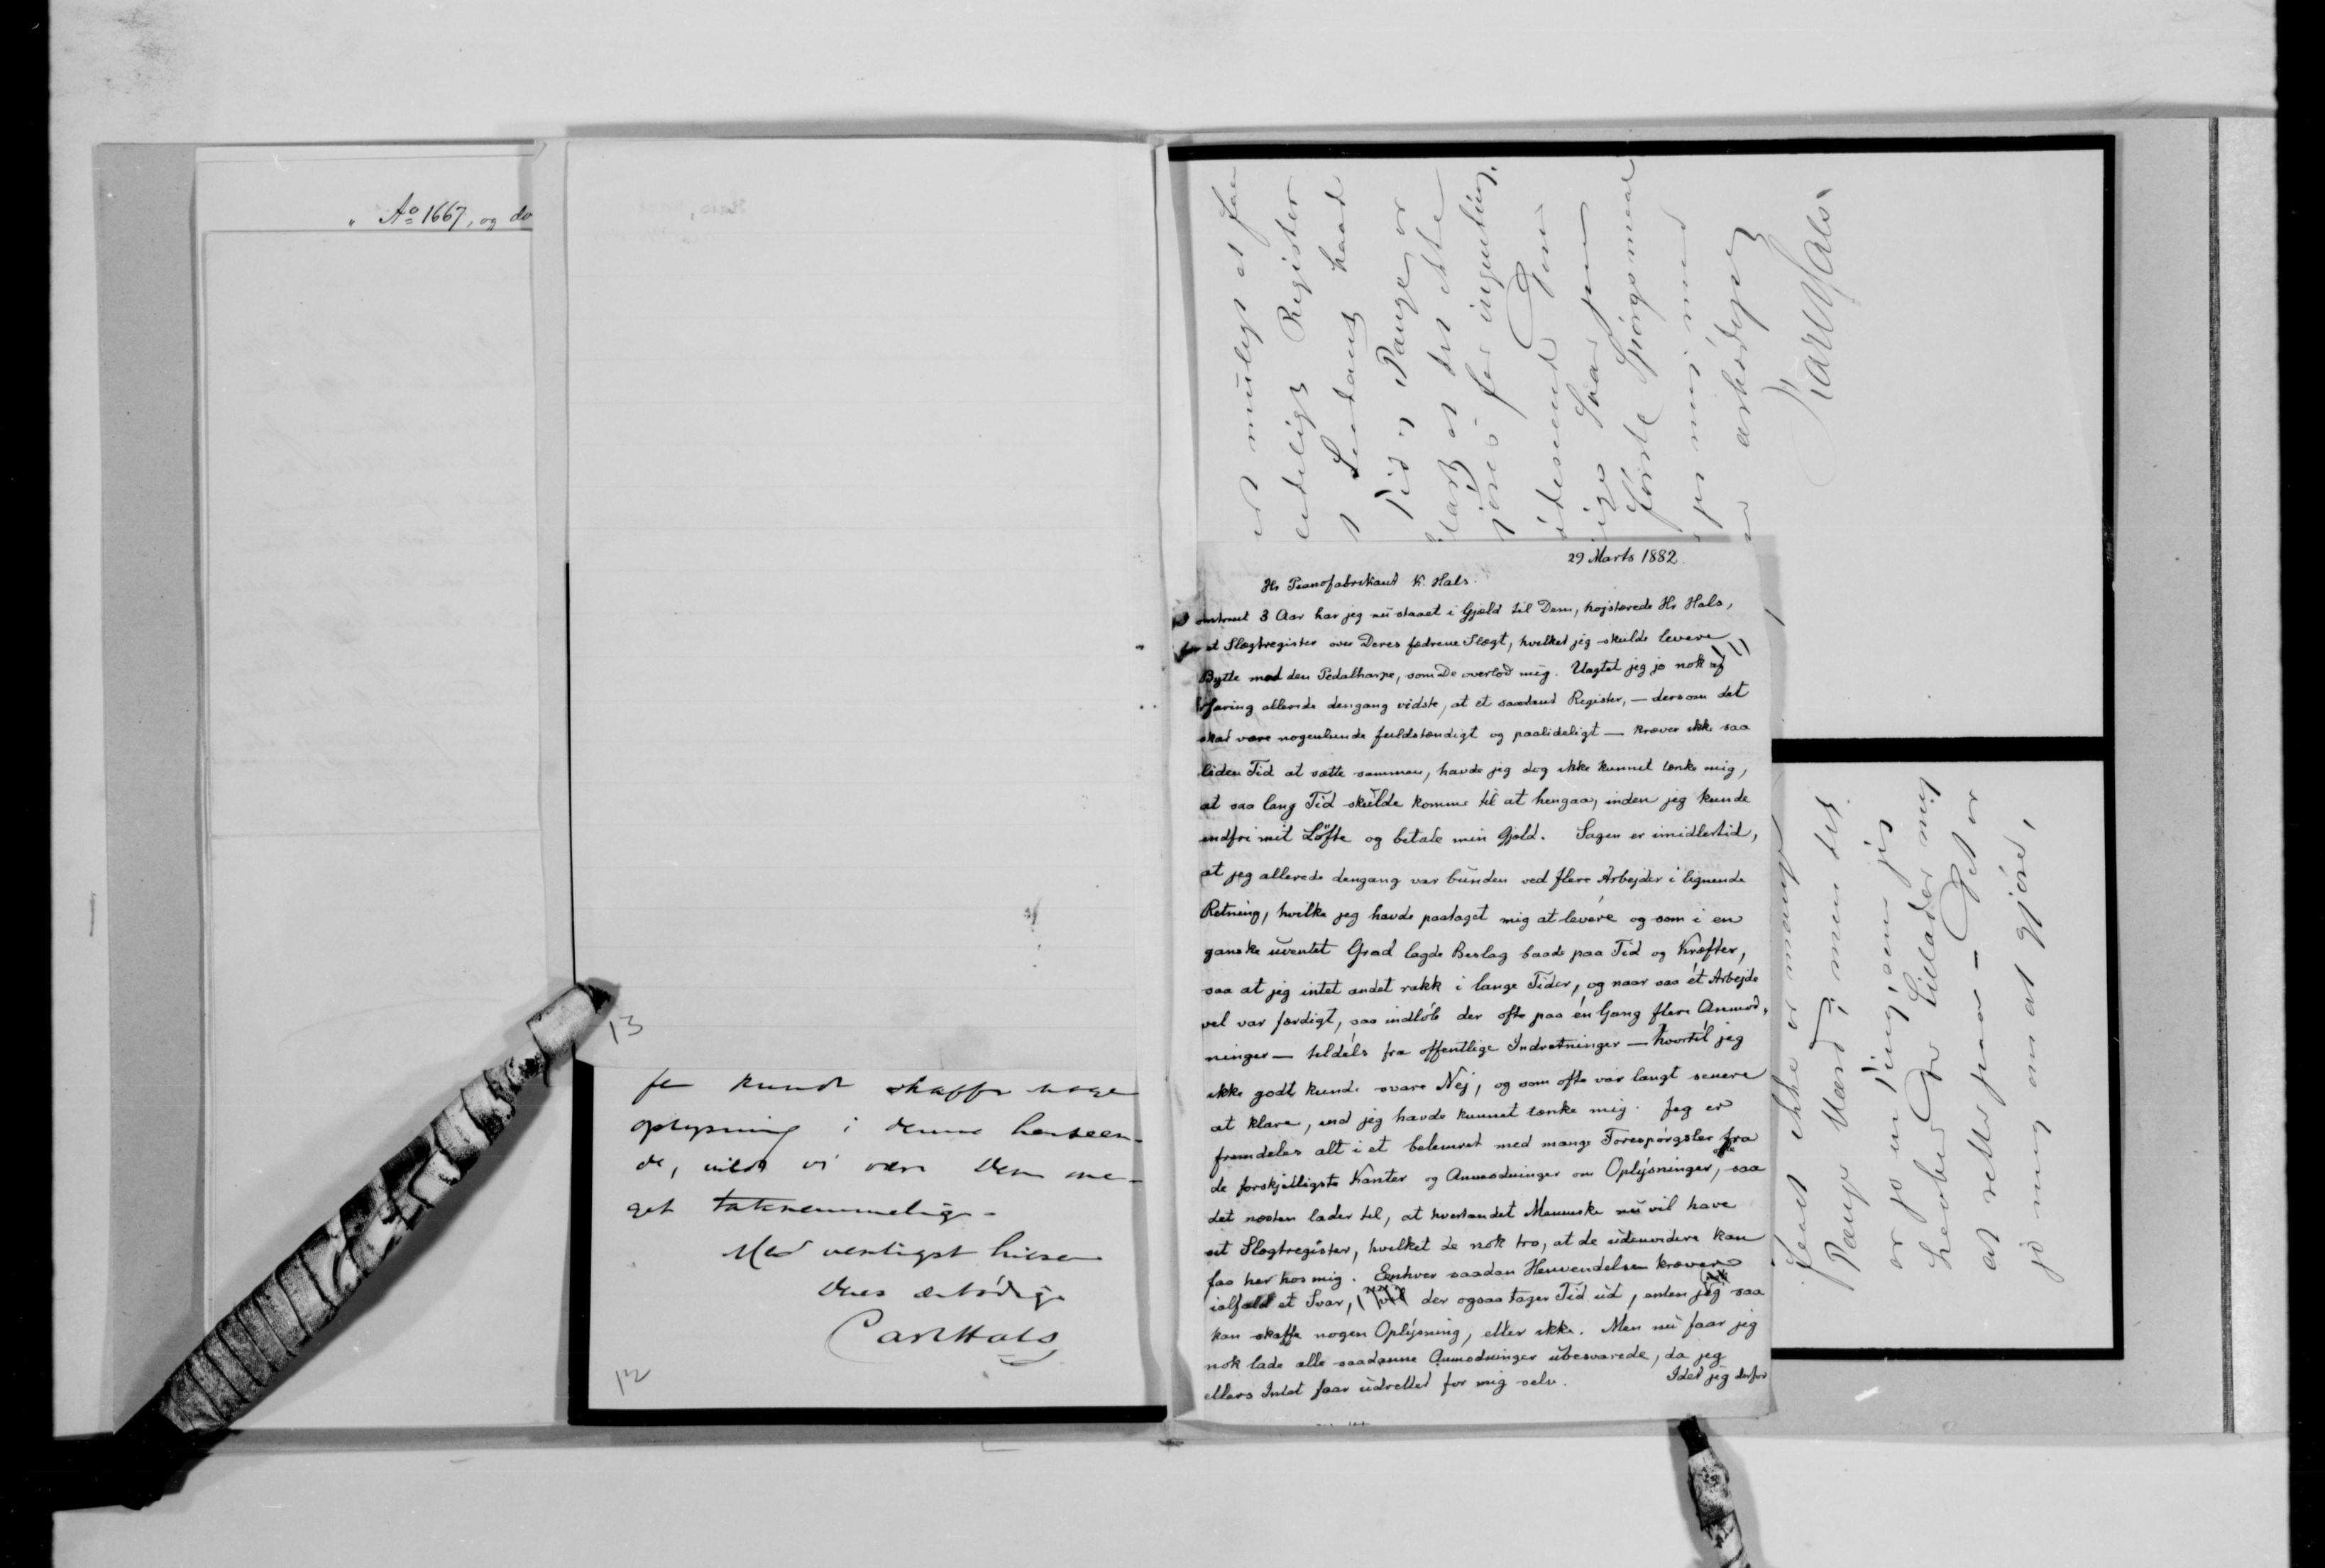 Aº 1667, og de
13
kunde skaffe noge
oplysning i denne henseen-
de, vilde vi være Dem me-
get taknemmelig-
Med venligst hilsen
Deres ærbødige
Carl Hals
12
muligt at faa
Register
haade
Tid og Penge, er
at det ikke
for ingenting,
første Spørgsmaal
ærbødigst
Karl Hals.
29 Marts 1882.
Hr Pianofabrikant K. Hals.
omtrent 3 Aar har jeg nu staaet i Gjæld til Dem, højstærede Hr Hals,
for et Slægtregister over Deres fædrene Slægt, hvilket jeg skulde levere
Bytte mod den Pedalharpe, som De overlod mig. Uagtet jeg jo nok af
Erfaring allerede dengang vidste, at et saadant Register, — dersom det
skal være nogenlunde fuldstændigt og paalideligt — kræver ikke saa
liden Tid at sætte sammen, havde jeg dog ikke kunnet tænke mig,
at saa lang Tid skulde komme til at hengaa, inden jeg kunde
indfri mit Løfte og betale min Gjæld. Sagen er imidlertid,
at jeg allerede dengang var bunden ved flere Arbejder i lignende
Retning, hvilke jeg havde paataget mig at levere og som i en
ganske uventet Grad lagde Beslag baade paa Tid og Kræfter,
saa at jeg intet andet rakk i lange Tider, og naar saa ét Arbejde
vel var færdigt, saa indløb der ofte paa én Gang flere Anmod,
ninger — teldels fra offentlige Indretninger — hvortil jeg
ikke godt kunde svare Nej, og som ofte var langt senere
at klare, end jeg havde kunnet tænke mig. Jeg er
fremdeles alt i et belemret med mange Forespørgsler fra
de forskjelligste Kanter og Anmodninger om Oplysninger, saa
det næsten lader til, at hvertandet Menneske nu vil have
et Slægtregister, hvilket de nok tro, at de udenvidere kan
faa her hos mig. Enhver saadan Henvendelse kræver
ialfald et Svar, der ogsaa tager Tid ud, enten jeg saa
kan skaffe nogen Oplysning, eller ikke. Men nu faar jeg
nok lade alle saadanne Anmodninger ubesvarede, da jeg
ellers Intet faar udrettet for mig selv. Idet jeg derfor
ikke er mange
Penge Værd; men det
er jo en Ting, som jeg
herved tillader mig
at rette paa — Det er
jo mig om at gjøre,